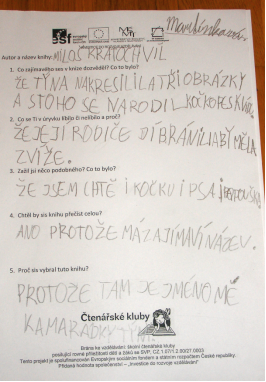 esf
Autor a název knihy: MILOŠ KRATOCHVIL
1. Co zajímavého ses v knize dozvěděl? Co to bylo?
ŽE TÝNA NAKRESLILA TŘI OBRÁZKY
A S TOHO SE NARODIL KOČKOPES
2. Co se Ti v úryvku líbilo či nelíbilo a proč?
ŽE JEJÍ RODIČE JÍ BRÁNILI ABY MĚLA
ZVÍŽE.
3. Zažil jsi něco podobného? Co to bylo?
ŽE JSEM CHTĚ I KOČKU I PSA I
4. Chtěl by sis knihu přečíst celou?
ANO PROTOŽE MÁ ZAJÍMAVÍ NÁZEV.
5. Proč sis vybral tuto knihu?
PROTOŽE TAM JE JMÉNO MÉ
KAMARÁDKY
Čtenářské kluby
Brána ke vzdělávání: školní čtenářské kluby
posilující rovné příležitosti dětí a žáků se SVP, CZ.1.07/1.2.00/27.0003
Tento projekt je spolufinancován Evropským sociálním fondem a státním rozpočtem České republiky.
Přidaná hodnota společenství – „Investice do rozvoje vzdělávání“